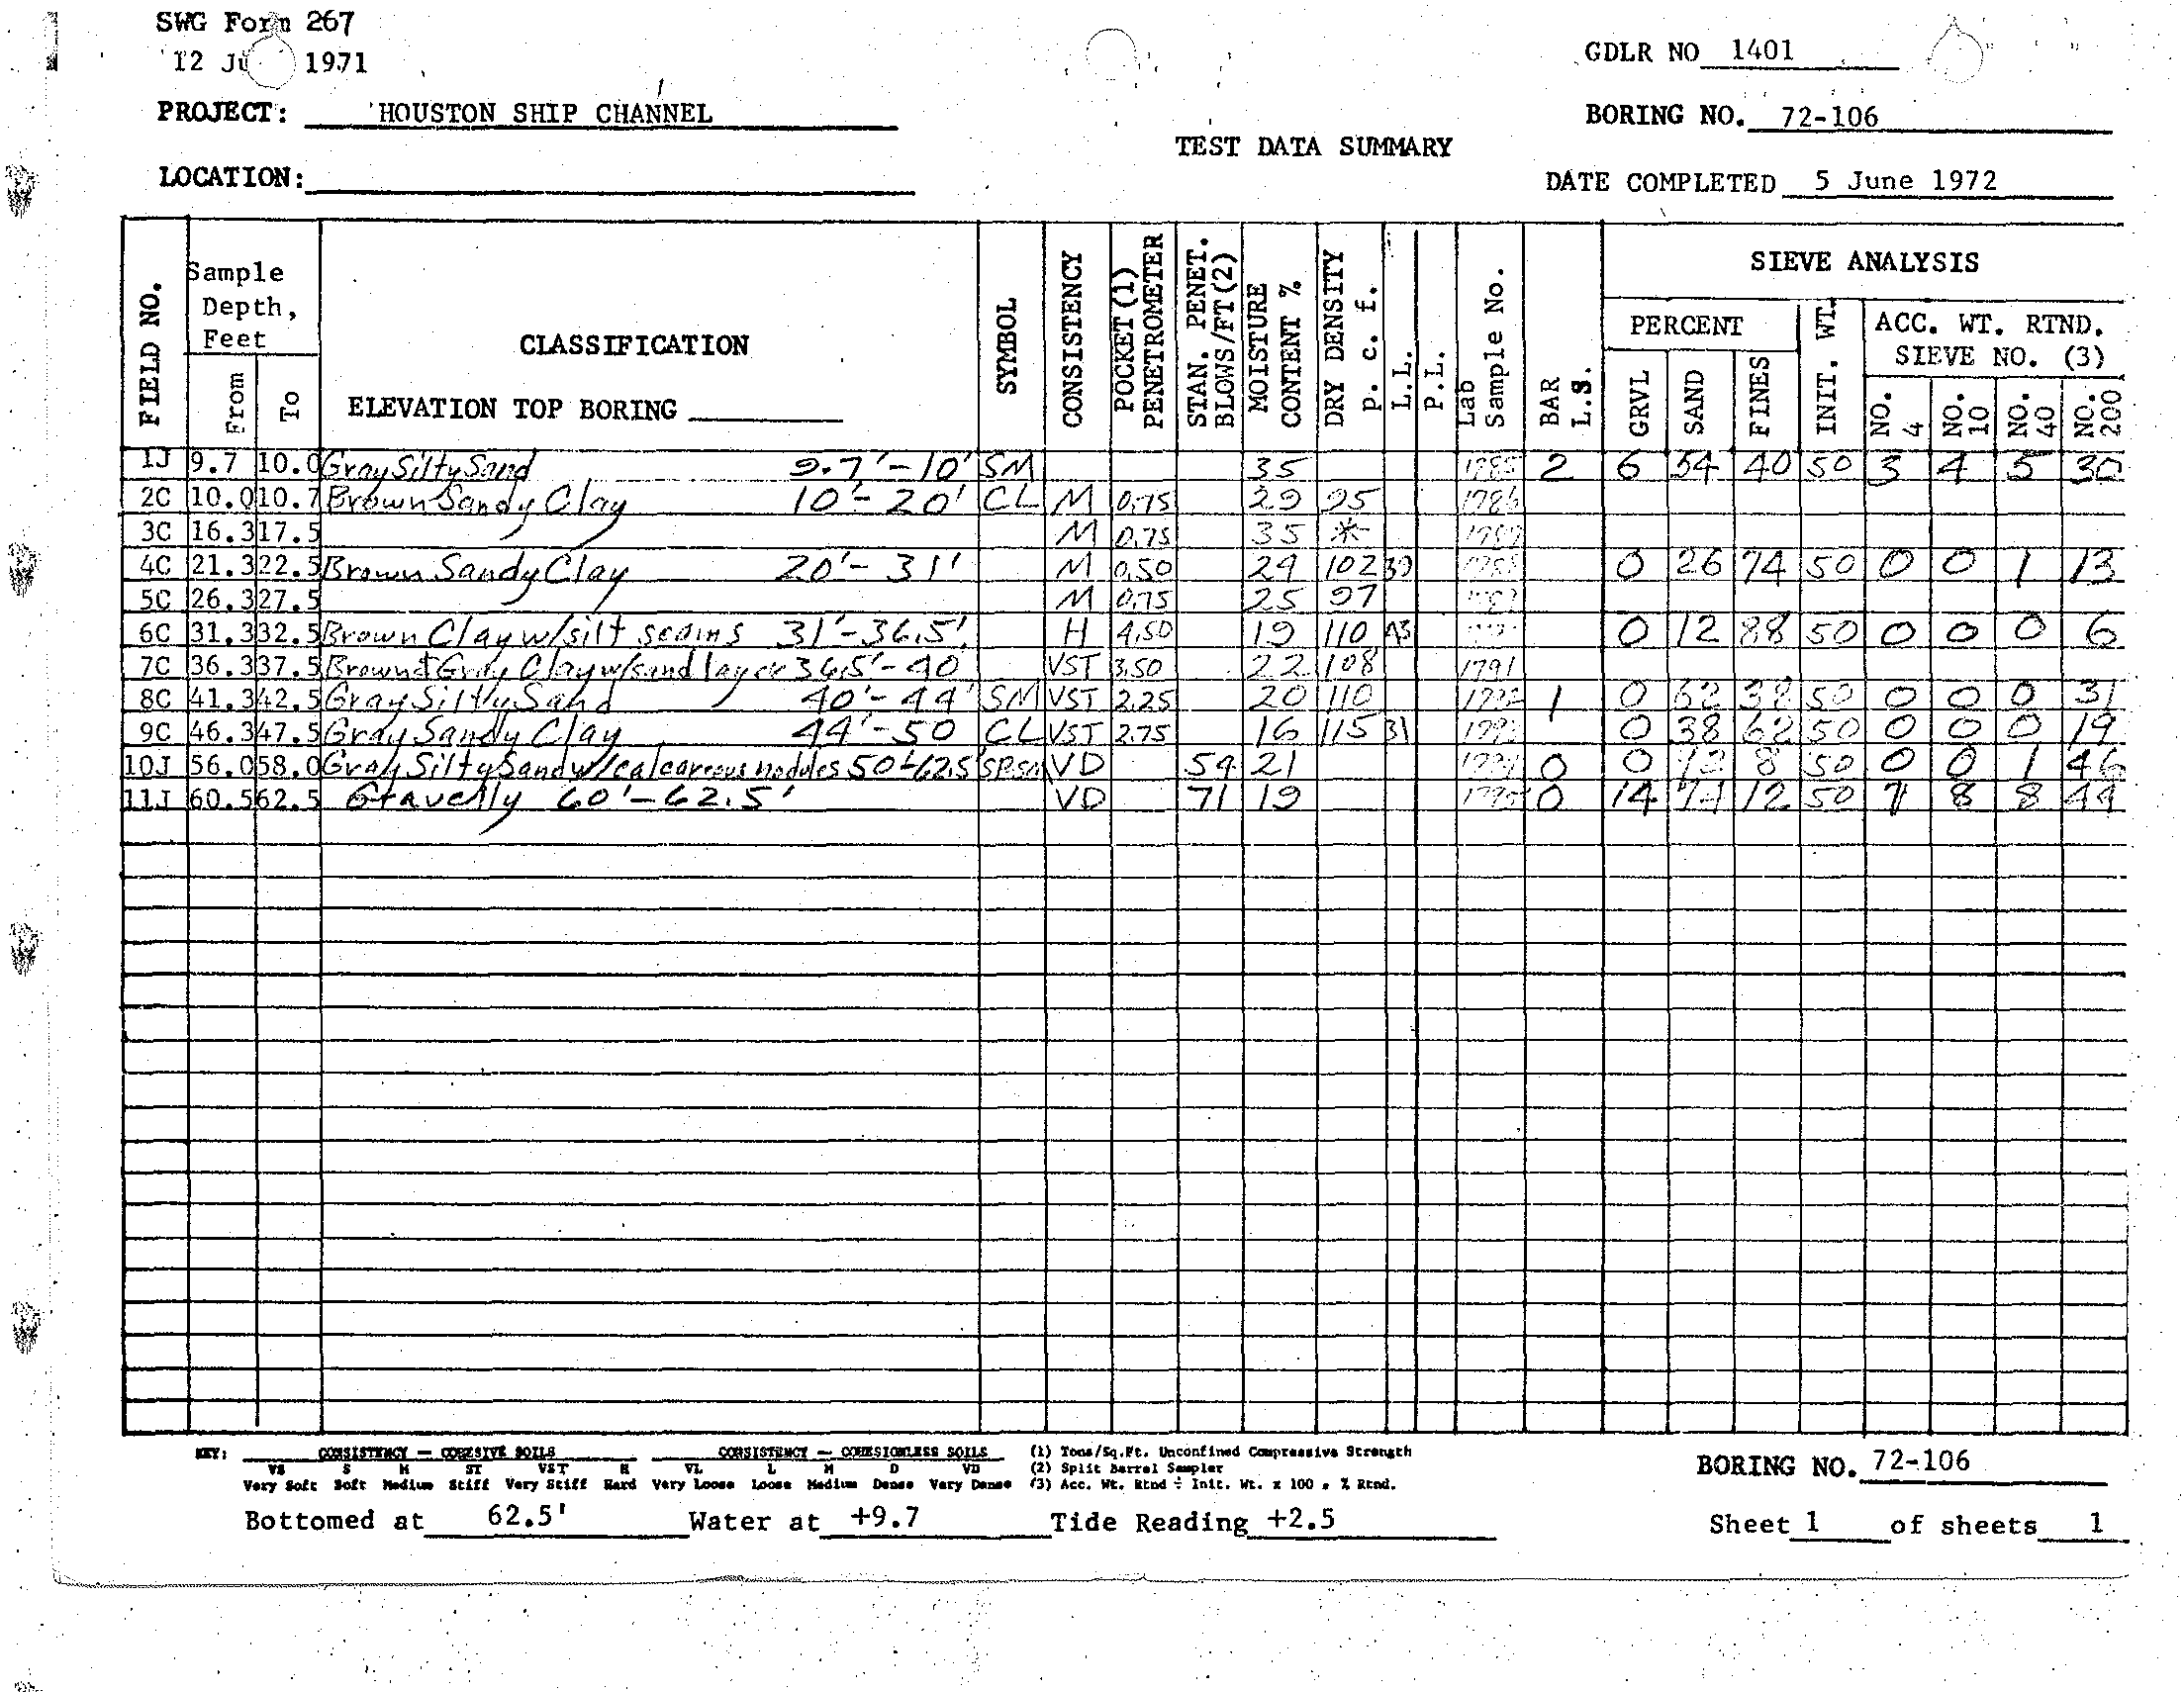 SWG Form 267
12 Ju 1971
GDLR NO 1401
PROJECT: HOUSTON SHIP CHANNEL
BORING NO. 72-106
TEST DATA SUMMARY
LOCATION:
DATE COMPLETED 5 June 1972
FIELD NO.
Sample Depth, Feet
From
To
CLASSIFICATION
ELEVATION TOP BORING
SYMBOL
CONSISTENCY
POCKET (1) PENETROMETER
STAN. PENET. BLOWS/FT (2)
MOISTURE CONTENT %
DRY DENSITY p. c. f.
L.L.
P.L.
Lab Sample No.
BAR L.S.
SIEVE ANALYSIS
PERCENT
GRVL
SAND
FINES
INIT. WT.
ACC. WT. RTND. SIEVE NO. (3)
NO. 4
NO. 10
NO. 40
NO. 200
1J 9.7 10.0 Gray Silty Sand 9.7'-10' SM 35 1785 2 6 54 40 50 3 4 5 30
2C 10.0 10.7 Brown Sandy Clay 10'-20' CL M 0.75 29 95 1786
3C 16.3 17.5 M 0.75 35 * 1787
4C 21.3 22.5 Brown Sandy Clay 20'-31' M 0.50 24 102 39 1788 0 26 74 50 0 0 1 13
5C 26.3 27.5 M 0.75 25 97
6C 31.3 32.5 Brown Clay w/silt seams 31'-36.5' H 4.50 19 110 43 0 12 88 50 0 0 0 6
7C 36.3 37.5 Brown & Gray Clay w/sand layer 36.5'-40 VST 3.50 22 108 1791
8C 41.3 42.5 Gray Silty Sand 40'-44' SM VST 2.25 20 110 1792 1 0 62 38 50 0 0 0 31
9C 46.3 47.5 Gray Sandy Clay 44'-50 CL VST 2.75 16 115 31 1793 0 38 62 50 0 0 0 19
10J 56.0 58.0 Gray Silty Sand w/calcareous nodules 50'-62.5 VD 54 21 1794 0 0 8 50 0 0 1 46
11J 60.5 62.5 Gravelly 60'-62.5' VD 71 19 1795 0 14 74 12 50 7 8 8 44
KEY: CONSISTENCY — COHESIVE SOILS CONSISTENCY — COHESIONLESS SOILS (1) Tons/Sq.Ft. Unconfined Compressive Strength
VS S M ST VST H VL L M D VD (2) Split Barrel Sampler
Very Soft Soft Medium Stiff Very Stiff Hard Very Loose Loose Medium Dense Very Dense (3) Acc. Wt. Rtnd ÷ Init. Wt. x 100 = % Rtnd.
BORING NO. 72-106
Bottomed at 62.5' Water at +9.7 Tide Reading +2.5
Sheet 1 of sheets 1